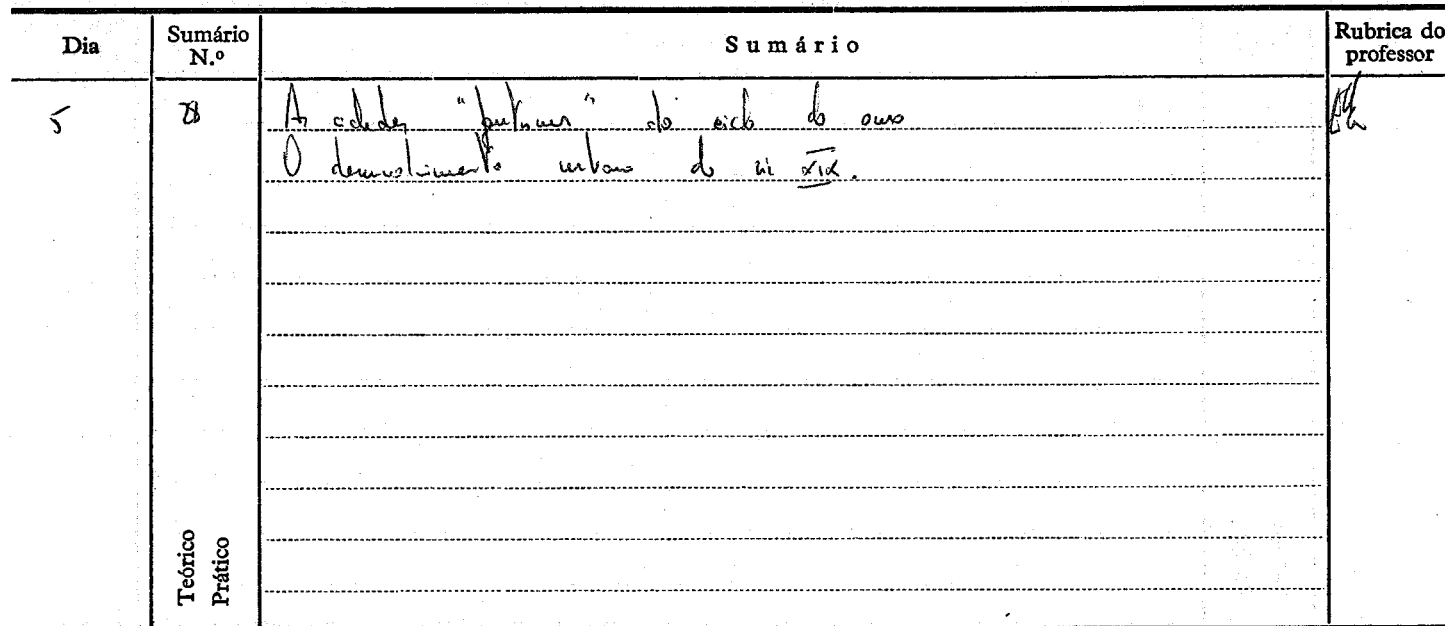 Dia
Sumário N.º
Sumário
Rubrica do professor
5
28
As cidades " " do ciclo do ouro
O desenvolvimento urbano do séc XIX.
Teórico
Prático